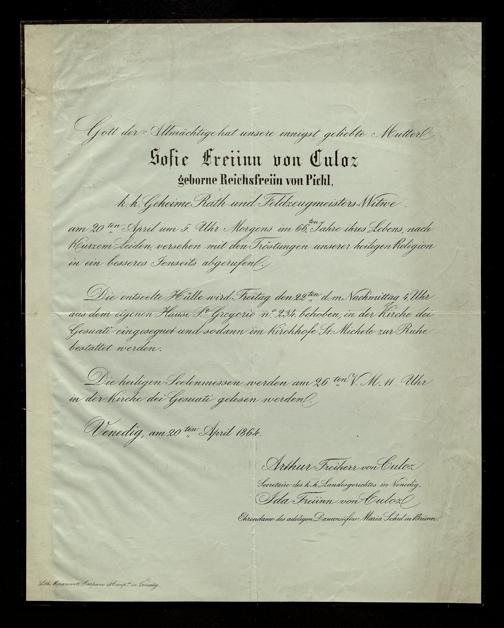 Gott der Allmächtige hat unsere innigst geliebte Mutter
Sofie Freiinn von Culoz
geborne Reichsfreiin von Pichl,
k. k. Geheime Rath und Feldzeugmeisters Witwe.
am 20ten April um 5. Uhr Morgens im 66ten Jahre ihres Lebens, nach
Kurzem Leiden, versehen mit den Tröstungen unserer heiligen Religion
in ein besseres Jenseits abgerufen.
Die entseelte Hülle wird Freitag den 22ten d. m. Nachmittag 4 Uhr
aus dem eigenen Hause St. Gregorio No. 234. behoben, in der Kirche dei
Gesuati eingesegnet und sodann im Kirchhofe St. Michele zur Ruhe
bestattet werden.
Die heiligen Seelenmessen werden am 26ten V. M. 11. Uhr
in der Kirche dei Gesuati gelesen werden.
Venedig, am 20ten April 1864.
Arthur Freiherr von Culoz
Secretaire des k. k. Landesgerichtes in Venedig.
Ida Freiinn von Culoz
Ehrendame des adeligen Damenstiftes Maria Schul in Brünn.
Lith. in Venedig